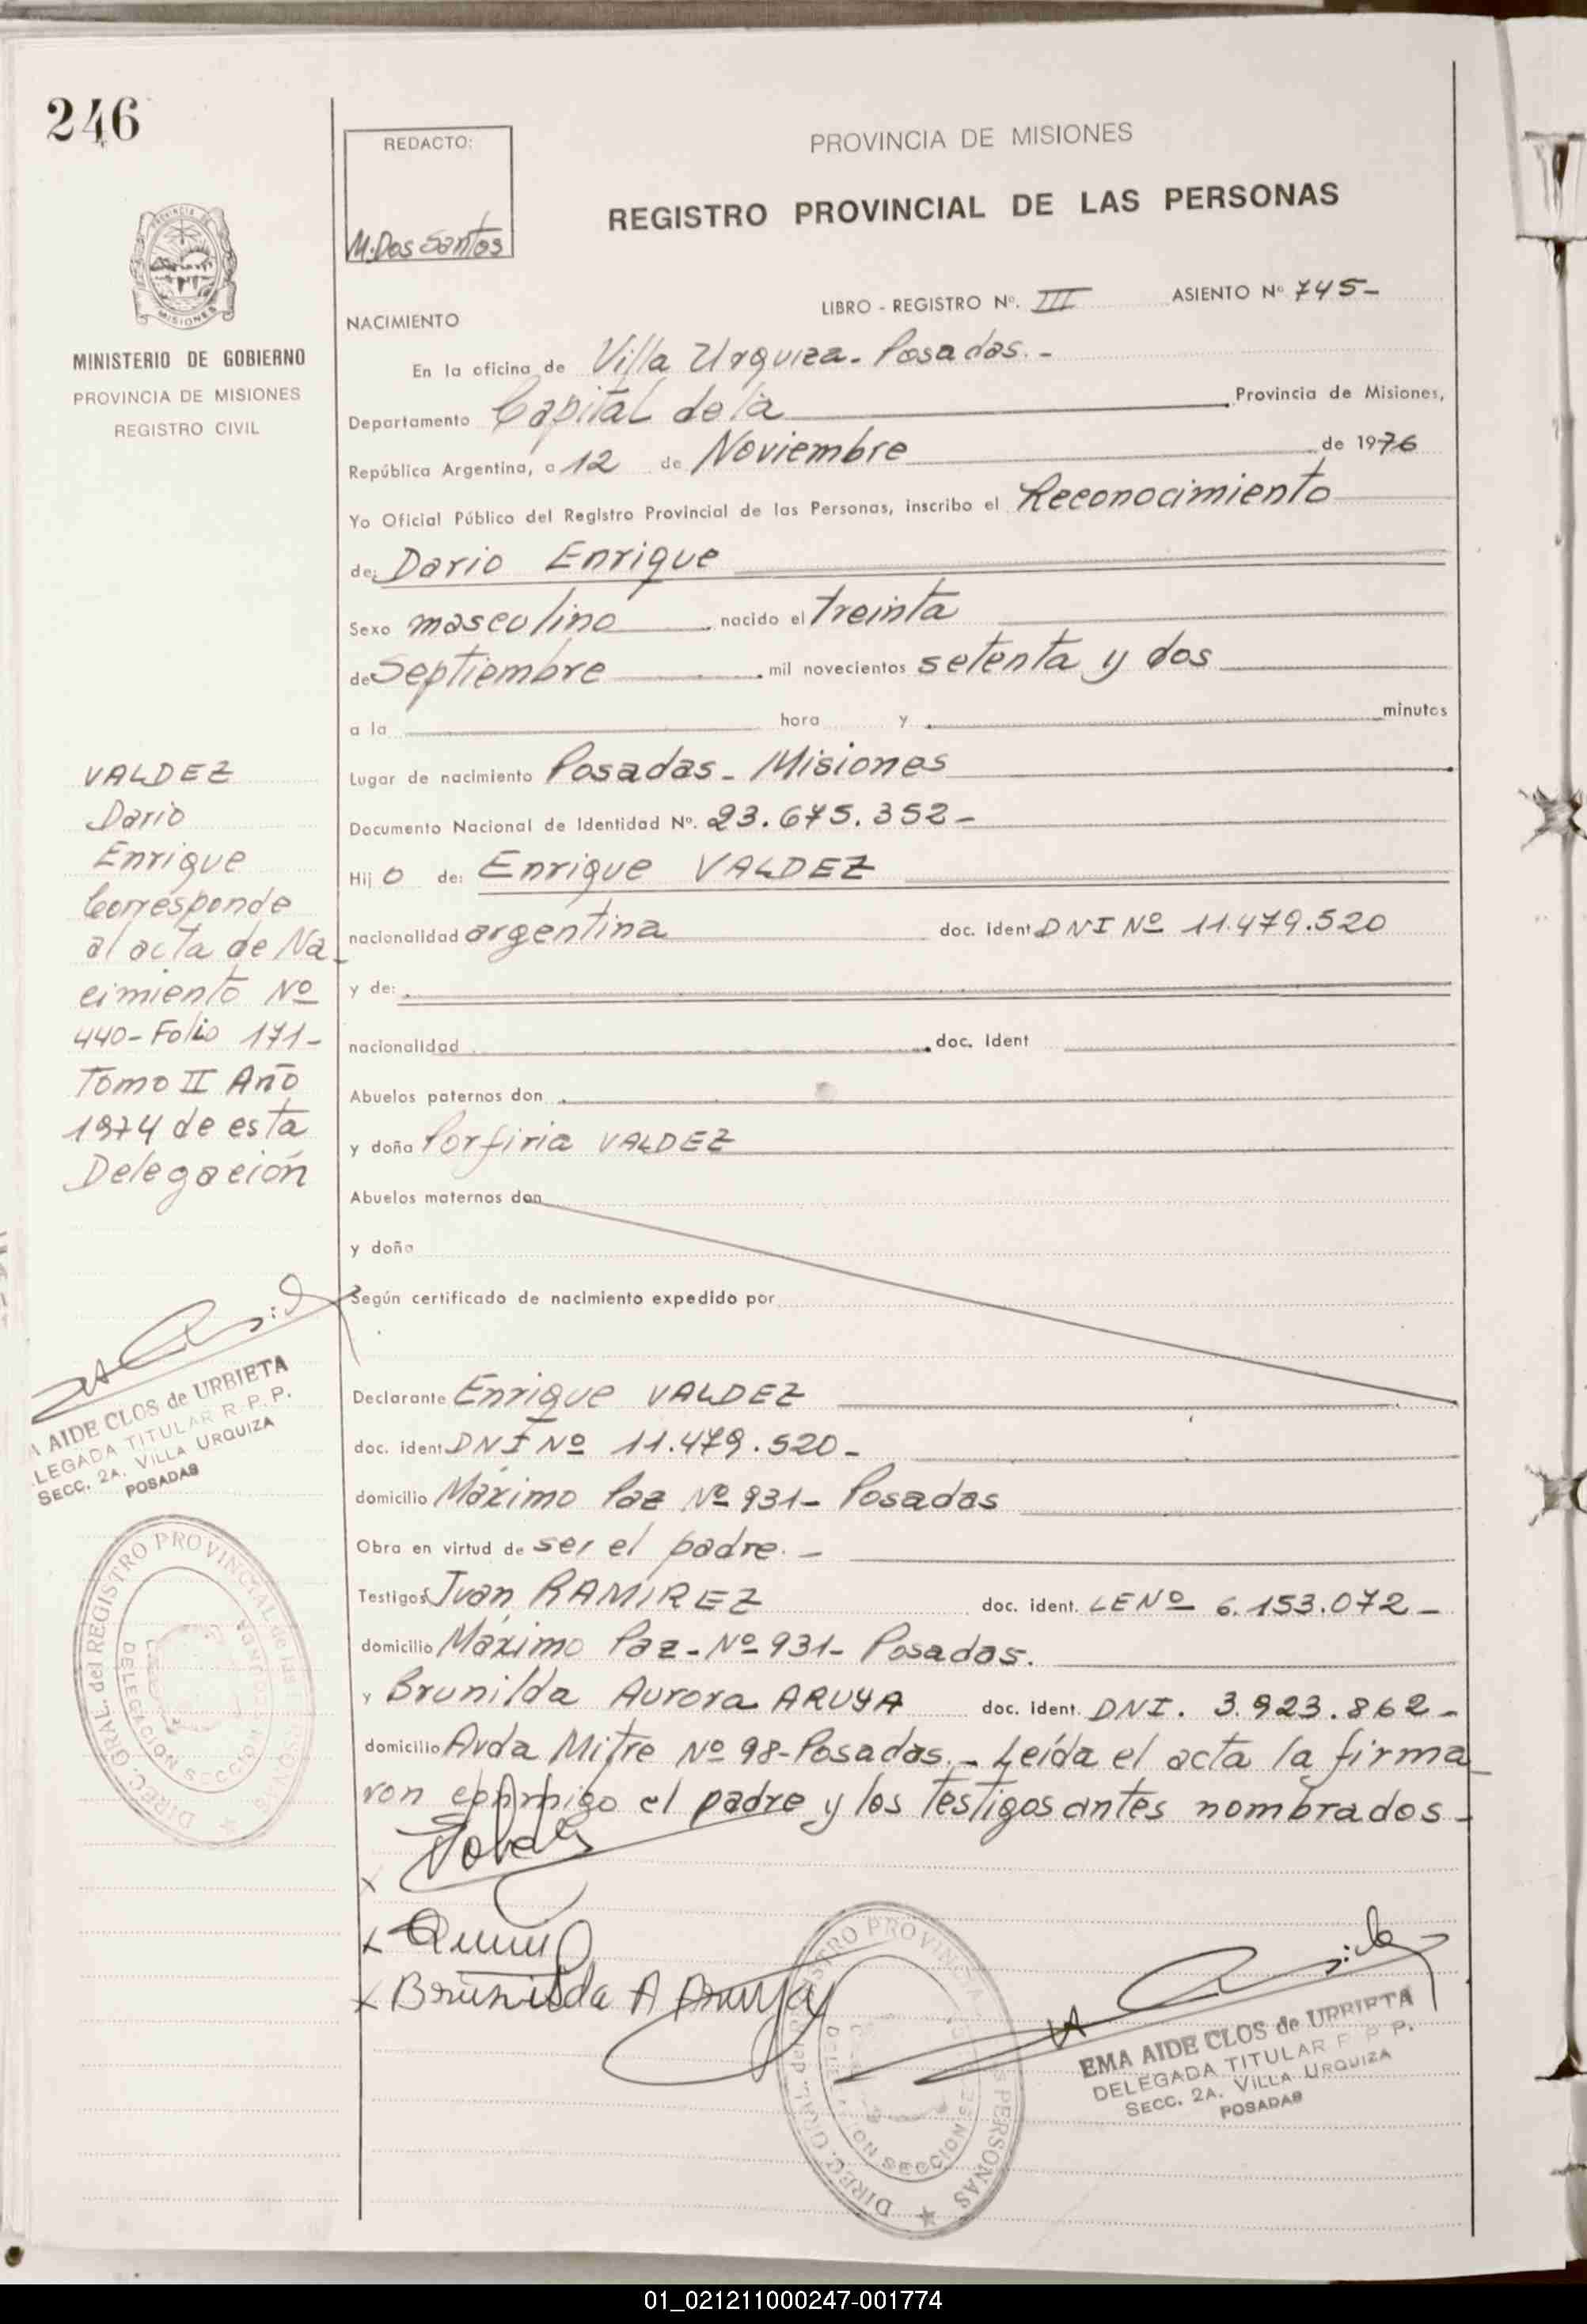 246
REDACTO:
M. Dos Santos
PROVINCIA DE MISIONES
REGISTRO PROVINCIAL DE LAS PERSONAS
PROVINCIA DE
MISIONES
MINISTERIO DE GOBIERNO
PROVINCIA DE MISIONES
REGISTRO CIVIL
LIBRO - REGISTRO Nº. III ASIENTO Nº 745-
NACIMIENTO
En la oficina de Villa Urquiza - Posadas. -
Departamento Capital de la Provincia de Misiones,
República Argentina, a 12 de Noviembre de 1976
Yo Oficial Público del Registro Provincial de las Personas, inscribo el Reconocimiento
de: Dario Enrique
Sexo masculino nacido el treinta
de Septiembre mil novecientos setenta y dos
a la hora y minutos
Lugar de nacimiento Posadas - Misiones
Documento Nacional de Identidad Nº. 23.675.352-
Hijo de: Enrique VALDEZ
nacionalidad argentina doc. ident DNI Nº 11.479.520
y de:
nacionalidad doc. ident
Abuelos paternos don
y doña Porfiria VALDEZ
Abuelos maternos don
y doña
Según certificado de nacimiento expedido por
Declarante Enrique VALDEZ
doc. ident DNI Nº 11.479.520-
domicilio Máximo Paz Nº 931- Posadas
Obra en virtud de ser el padre. -
Testigos Juan RAMIREZ doc. ident. LE Nº 6.153.072-
domicilio Máximo Paz - Nº 931- Posadas.
y Brunilda Aurora ARUYA doc. ident. DNI. 3.923.862-
domicilio Avda Mitre Nº 98-Posadas. - Leída el acta la firma
ron conmigo el padre y los testigos antes nombrados-
VALDEZ
Dario
Enrique
Corresponde
al acta de Na_
cimiento Nº
440- Folio 171-
Tomo II Año
1974 de esta
Delegación
A AIDE CLOS de URBIETA
LEGADA TITULAR R. P. P.
SECC. 2A. VILLA URQUIZA
POSADAS
DIREC. GRAL. del REGISTRO PROVINCIAL de las PERSONAS
DELEGACION SECCION
x
x
x Brunilda A Aruya
DIREC. GRAL. del REGISTRO PROVINCIAL de las PERSONAS
DELEGACION SECCION
EMA AIDE CLOS de URBIETA
DELEGADA TITULAR R. P. P.
SECC. 2A. VILLA URQUIZA
POSADAS
01_021211000247-001774